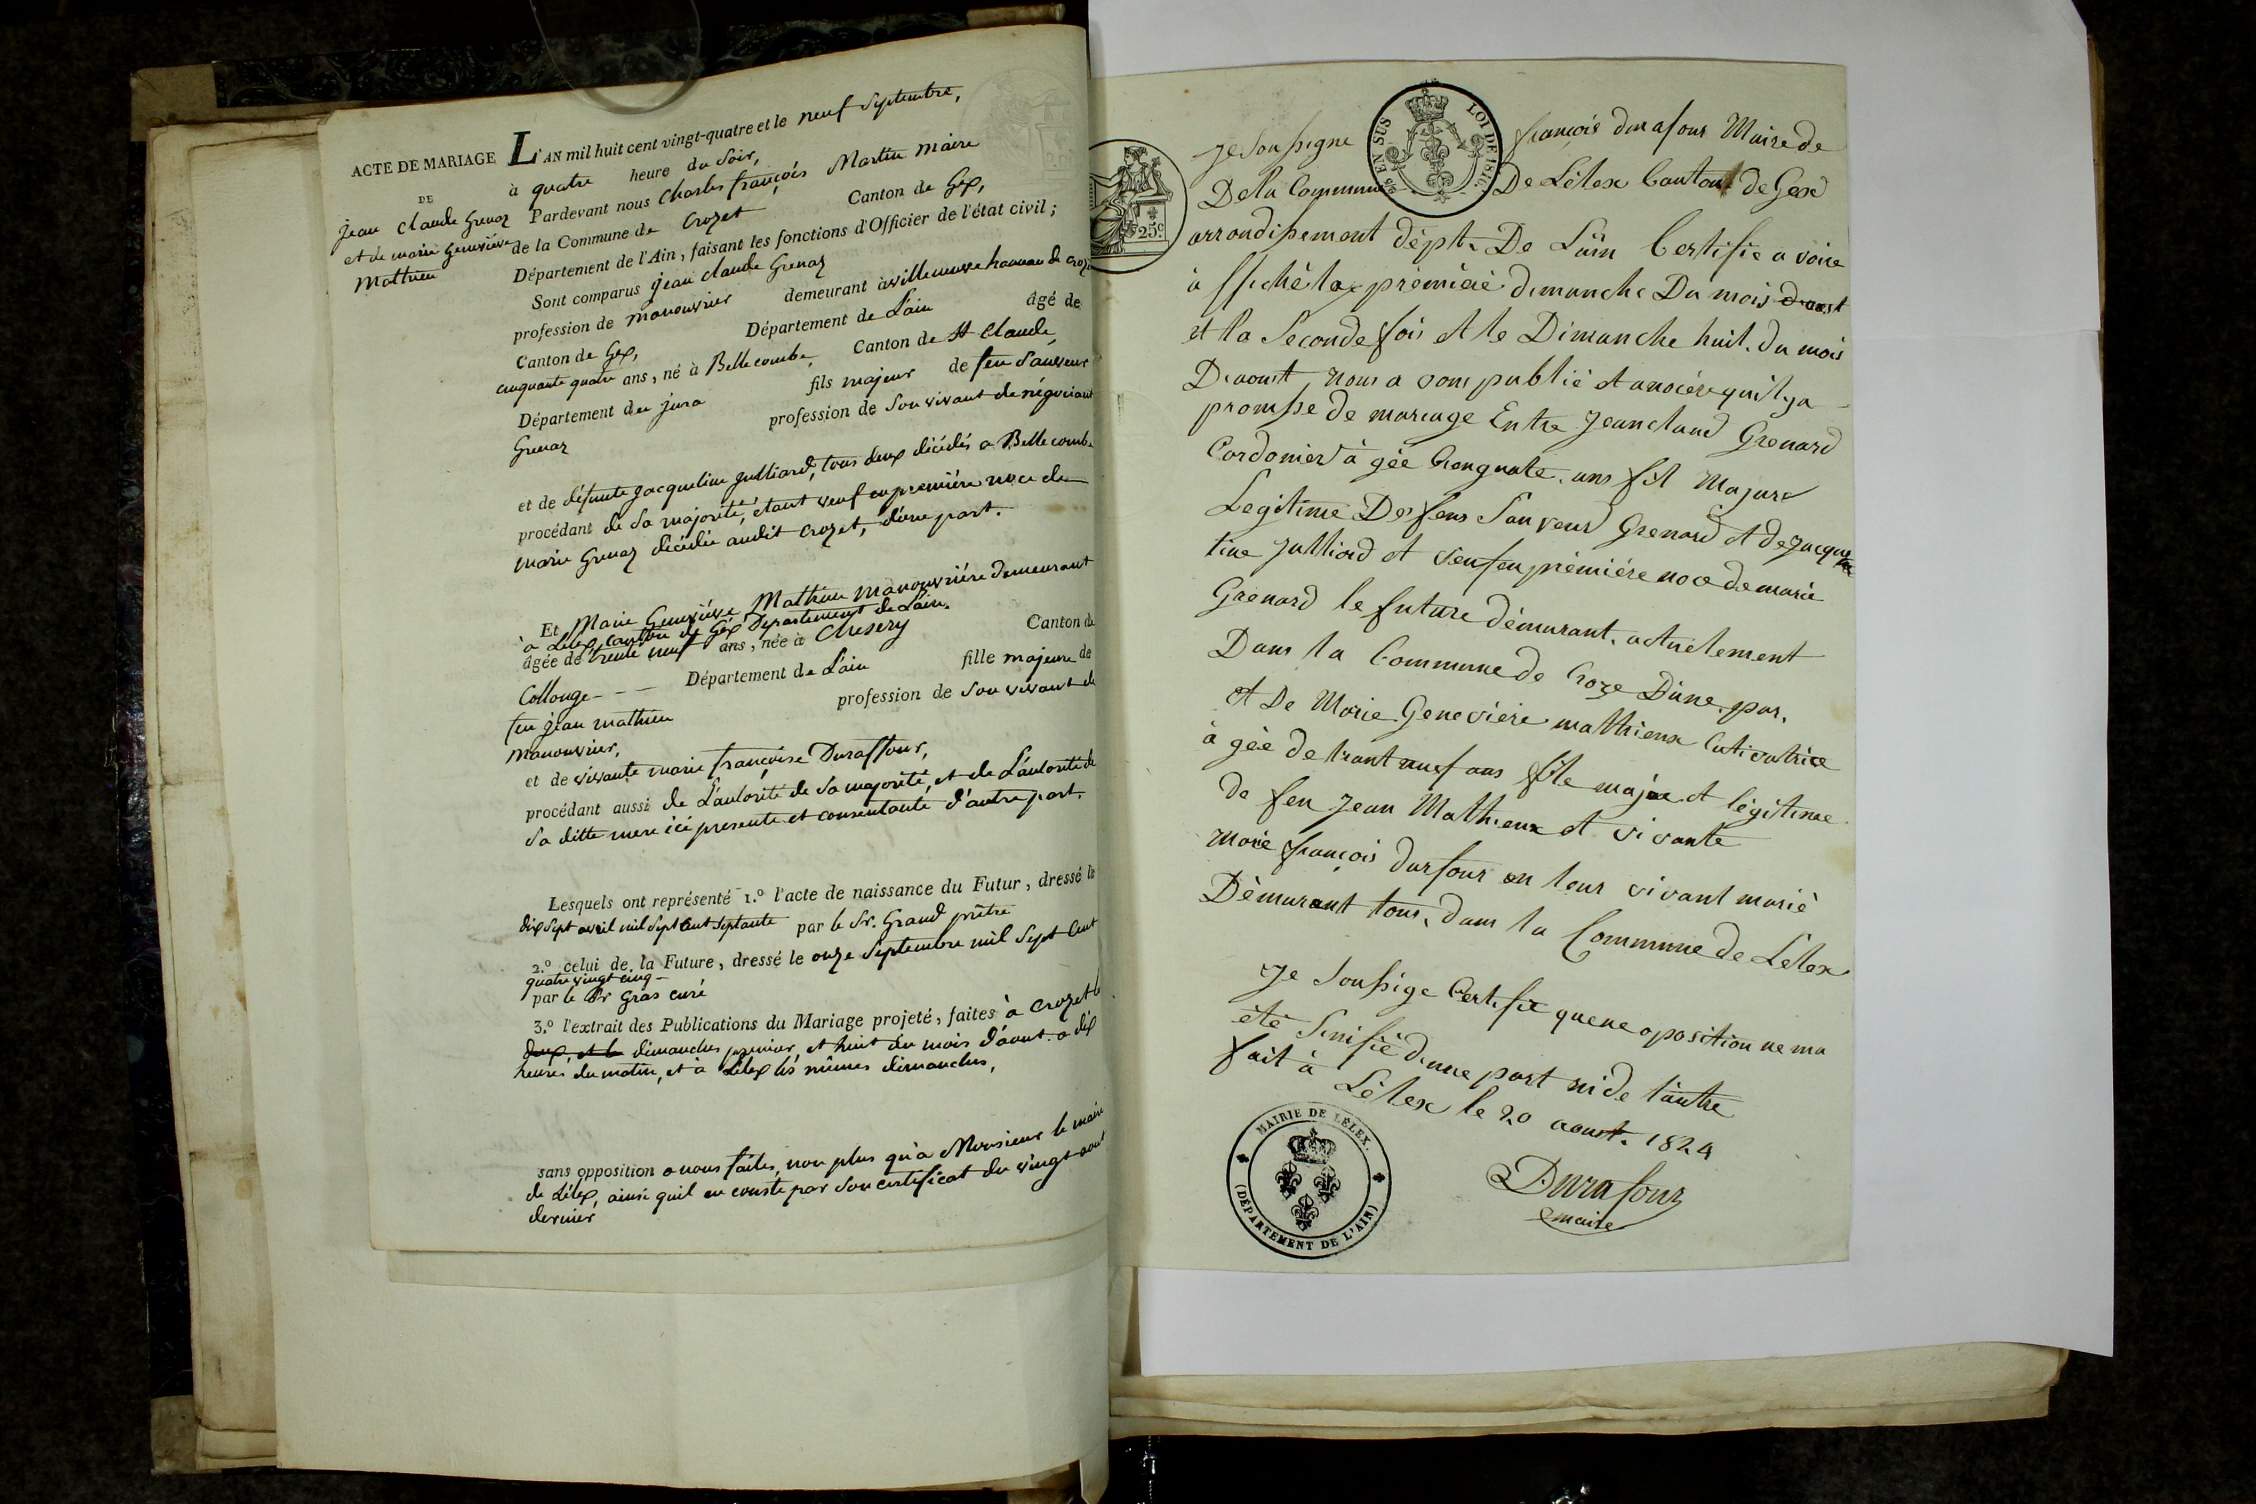 ACTE DE MARIAGE
DE
jean claude Grenaz
et de marie Geneviéve
Mathieu
L'AN mil huit cent vingt-quatre et le neuf Septembre,
à quatre heure du Soir,
Pardevant nous Charles françois Martin maire
de la Commune de Crozet Canton de Gex,
Département de l'Ain, faisant les fonctions d'Officier de l'état civil;
Sont comparus jean claude Grenaz
profession de manouvrier demeurant à villeneuve hameau de Croz
Canton de Gex, Département de L'ain âgé de
cinquante quatre ans, né à Bellecombe Canton de St Claude,
Département du jura fils majeur de feu Sauveur
Grenaz profession de Son vivant de négociant
et de défunte jacqueline julliard, tous deux décédés a Bellecombe
procédant de Sa majorité, étant veuf en première noce de
marie Grenaz décédée audit Crozet, d'une part.
Et Marie Geneviéve Mathieu manouvriére demeurant
à Lélex, canton de Gex Département de L'ain.
âgée de trente neuf ans, née à Chesery Canton de
Collonge - - - Département de L'ain fille majeure de
feu jean mathieu profession de Son vivant de
manouvrier,
et de vivante marie françoise Duraffour,
procédant aussi de L'autorité de Sa majorité, et de L'autorité de
Sa ditte mere ici presente et consentante d'autre part.
Lesquels ont représenté 1.º l'acte de naissance du Futur, dressé le
dix Sept avril mil Sept Cent Septante par le Sr. Grand prêtre
2.º celui de la Future, dressé le onze Septembre mil Sept Cent
quatre vingt cinq -
par le Sr Gras curé
3.º l'extrait des Publications du Mariage projeté, faites à Crozet le
deux, et le dimanches premier et huit du mois d'aout a dix
heures du matin, et à Lélex les mêmes dimanches,
sans opposition a nous faites, non plus qu'à Monsieur le maire
de Lélex, ainsi quil en conste par Son certificat du vingt aout
dernier
25c
EN SUS
LOI DE 1816
Je Soussigne françois durafour Maire de
De la Commune De Lélex Canton de Gex
arrondissement dépt. De L'ain Certifie avoire
affiché la première dimanche Du mois daoust
et la Seconde fois et le Dimanche huit. du mois
Daoust, nous avons publié et anocére quil ya
promsse de mariage Entre Jeanclaud Grenard
Cordonier à gée Cenquate. ans fil Majure
Legitime Des feus Sauveur Grenard et de jacque
line Julliard et veuf en prémiére noce de marie
Grenard le future démurant. actuelement
Dans la Commune de Croze Dune. par.
et De Marie Genevieve matthieux Cutivatrice
à gée de trant neuf ans file majee et légitime
de feu Jean Mathieux et vivante
Marie françois durfour en leur vivant marié
Démurant tous. dans la Commune de Lélex
Je Soussige Certifie quene oposition ne ma
été Sinifié dune part ni de l'autre
fait à Lélex le 20 aoust. 1824
Durafour
maire
MAIRIE DE LELEX.
(DÉPARTEMENT DE L'AIN)